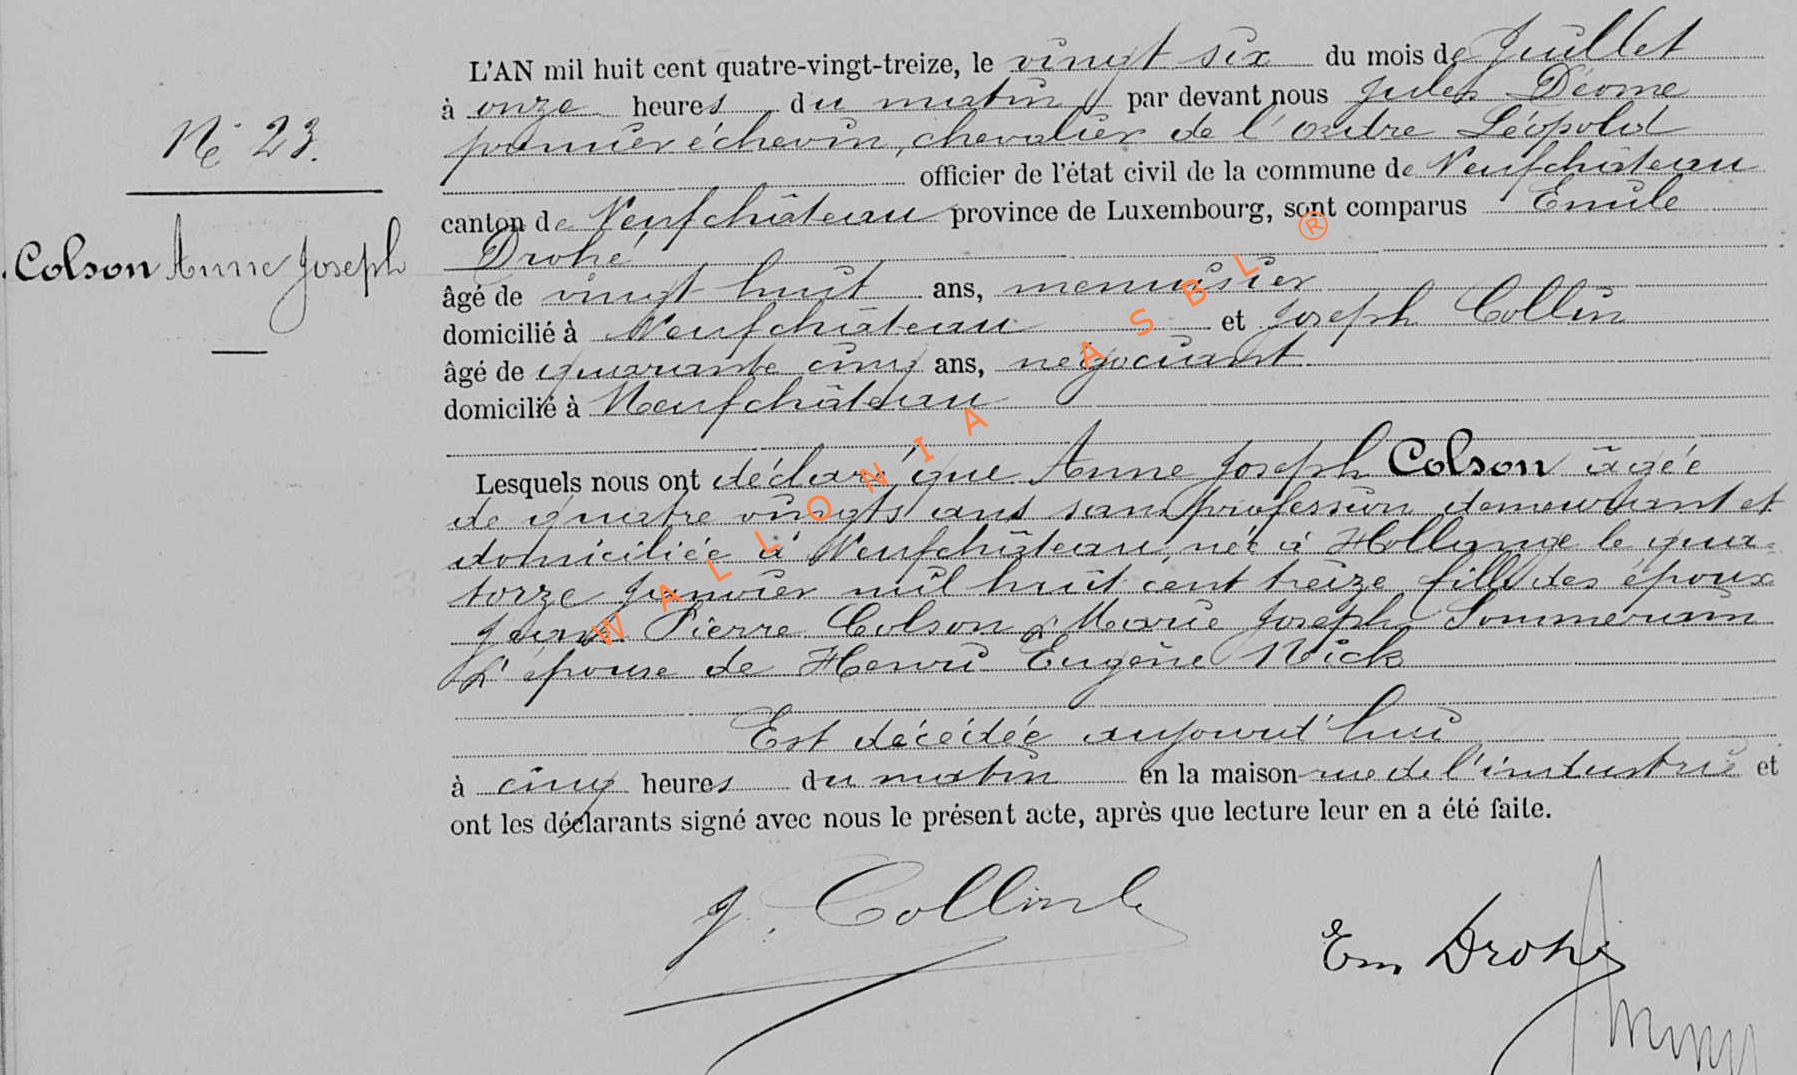 L'AN mil huit cent quatre-vingt-treize, le vingt six du mois de Juillet
à onze heures du matin par devant nous Jules Déome
premier échevin, chevalier de l'ordre Léopold
officier de l'état civil de la commune de Neufchâteau
canton de Neufchâteau province de Luxembourg, sont comparus Emile
Drohé
âgé de vingt huit ans, menuisier
domicilié à Neufchâteau et Joseph Collin
âgé de quarante cinq ans, négociant
domicilié à Neufchâteau
Lesquels nous ont déclaré que Anne Joseph Colson âgée
de quatre vingts ans sans profession demeurant et
domiciliée à Neufchâteau, née à Hollange le qua-
torze Janvier mil huit cent treize fille des époux
Jean Pierre Colson & Marie Joseph Sommerain
L'épouse de Henri Eugène Nick
Est décédée aujourd'hui
à cinq heures du matin en la maison rue de l'industrie et
ont les déclarants signé avec nous le présent acte, après que lecture leur en a été faite.
N° 23.
Colson Anne Joseph
J. Collin
Em Drohé
WALLONIA ASBL ®